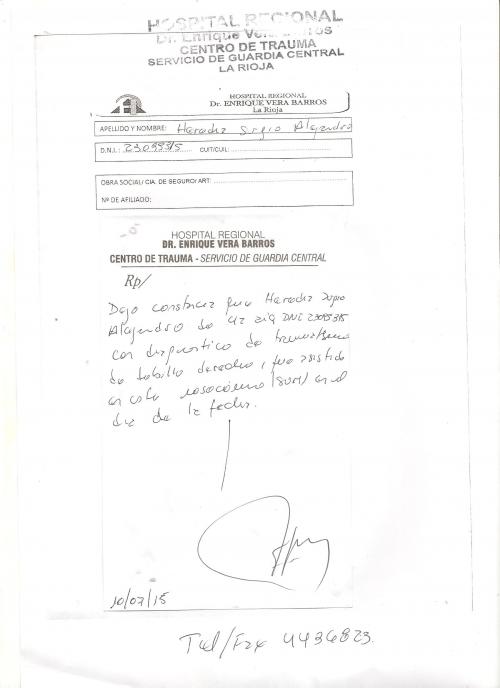 HOSPITAL REGIONAL
Dr. Enrique Vera Barros
CENTRO DE TRAUMA
SERVICIO DE GUARDIA CENTRAL
LA RIOJA
HOSPITAL REGIONAL
Dr. ENRIQUE VERA BARROS
La Rioja
APELLIDO Y NOMBRE: Heredia Sergio Alejandro
D.N.I.: 23.095315 CUIT/CUIL:
OBRA SOCIAL/ CIA. DE SEGURO/ ART:
Nº DE AFILIADO:
HOSPITAL REGIONAL
DR. ENRIQUE VERA BARROS
CENTRO DE TRAUMA - SERVICIO DE GUARDIA CENTRAL
Rp/
Dejo constancia que Heredia Sergio
Alejandro de 42 DNI
con diagnostico de traumatismo
de tobillo derecho, fue asistido
en este nosocomio en el
día de la fecha.
10/07/15
Tel/Fax 4436823